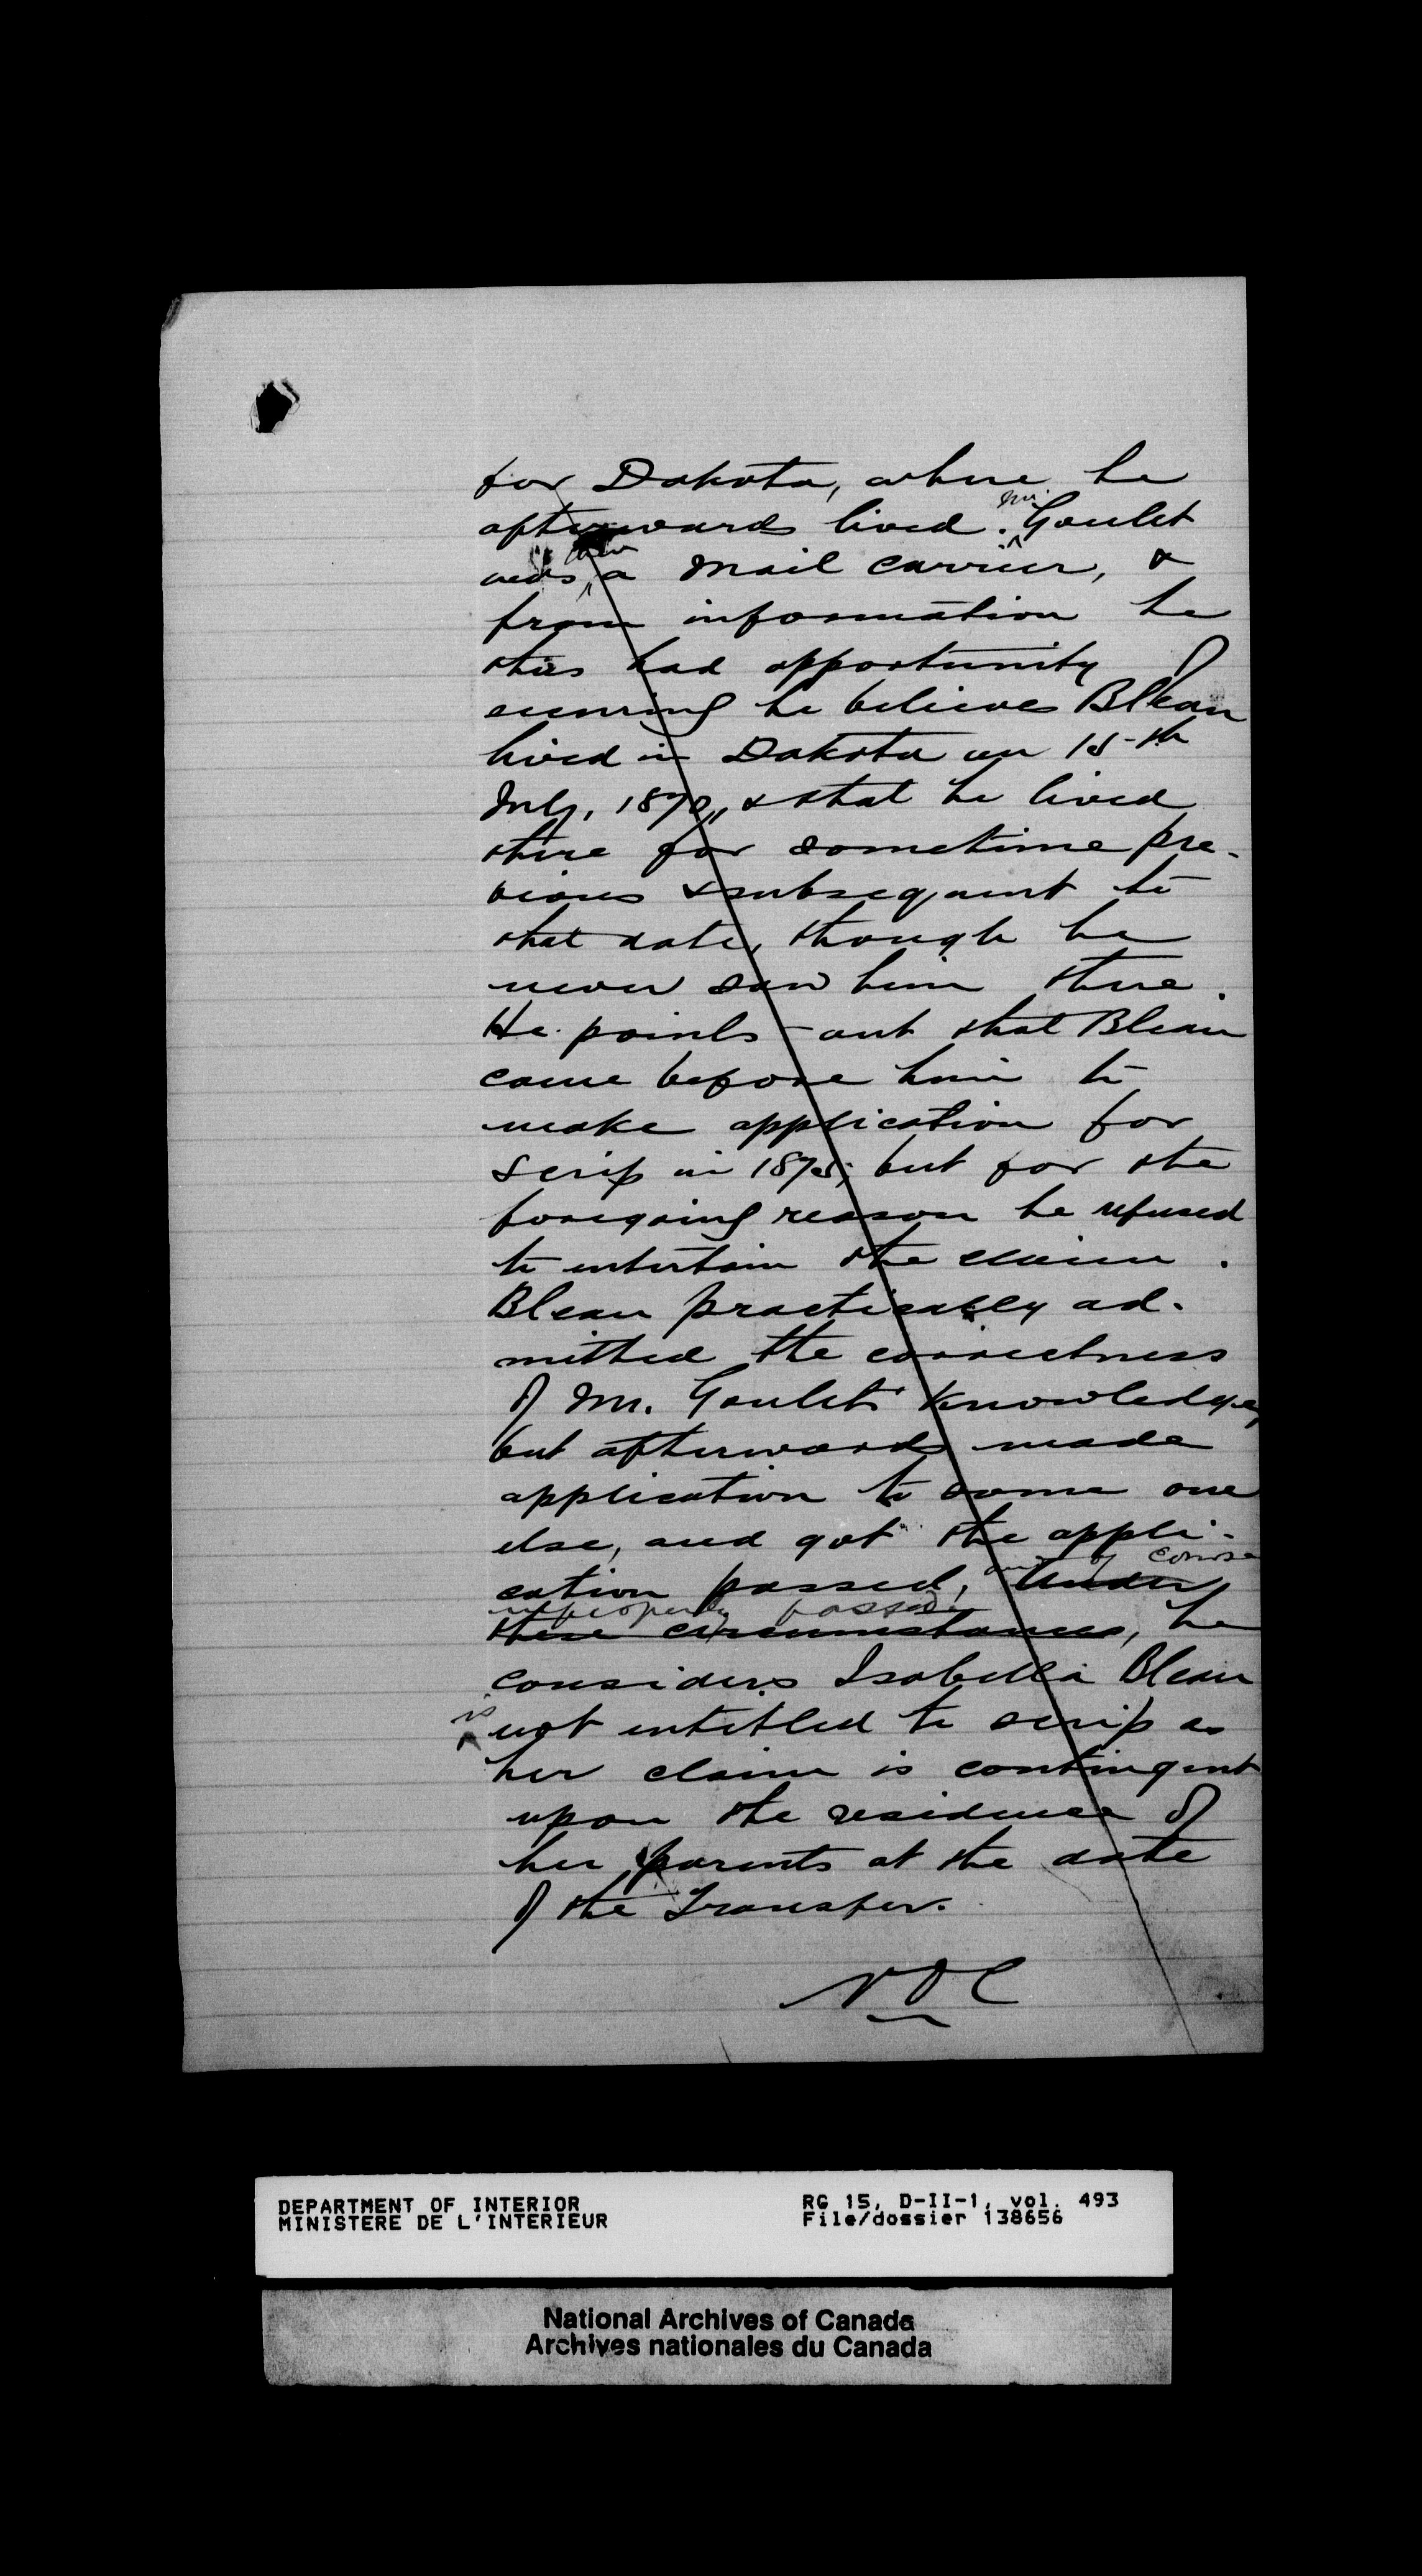 for Dakota, where he
afterwards lived. Mr. Goulet
was then a Mail Carrier, &
from information he
thus had opportunity of
securing he believes Bleau
lived in Dakota on 15th
July, 1870, & that he lived
there for sometime pre-
vious & subsequent to
that date, though he
never saw him there.
He points out that Bleau
came before him to
make application for
scrip in 1875; but for the
foregoing reason he refused
to entertain the claim.
Bleau practically ad-
mitted the correctness
of Mr. Goulet's knowledge,
but afterwards made
application to some one
else, and got the appli-
cation passed, and of course Under
improperly passed these circumstances, he
considers Isabella Bleau
is not entitled to scrip as
her claim is contingent
upon the residence of
her parents at the date
of the Transfer.
DEPARTMENT OF INTERIOR
MINISTERE DE L'INTERIEUR
RG 15, D-II-1, vol. 493
File/dossier 138656
National Archives of Canada
Archives nationales du Canada